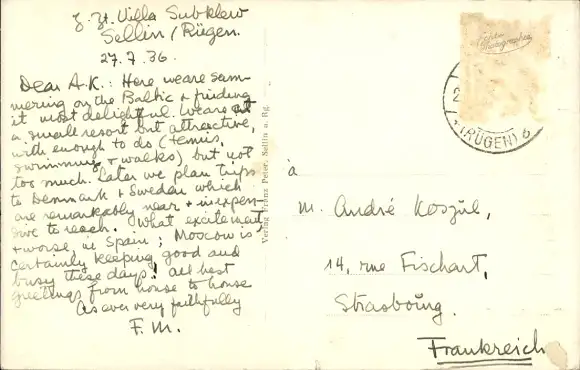 z. Zt. Villa Subklew
Sellin/Rügen.
27.7.36.
Dear A.K.: Here we are sum-
mering on the Baltic & finding
it most delightful. We are at
a small resort but attractive,
with enough to do (tennis,
swimming & walks) but not
too much. Later we plan trips
to Denmark & Sweden which
are remarkably near & inexpen-
sive to reach. What excitement,
& worse, in Spain; Moscow is
certainly keeping good and
busy these days! All best
greetings from house to house
As ever very faithfully
F.M.
Verlag Franz Peter, Sellin a. Rg.
Echte Photographie
(RÜGEN) b
à
M. André Koszul,
14, rue Fischart,
Strasbourg.
Frankreich